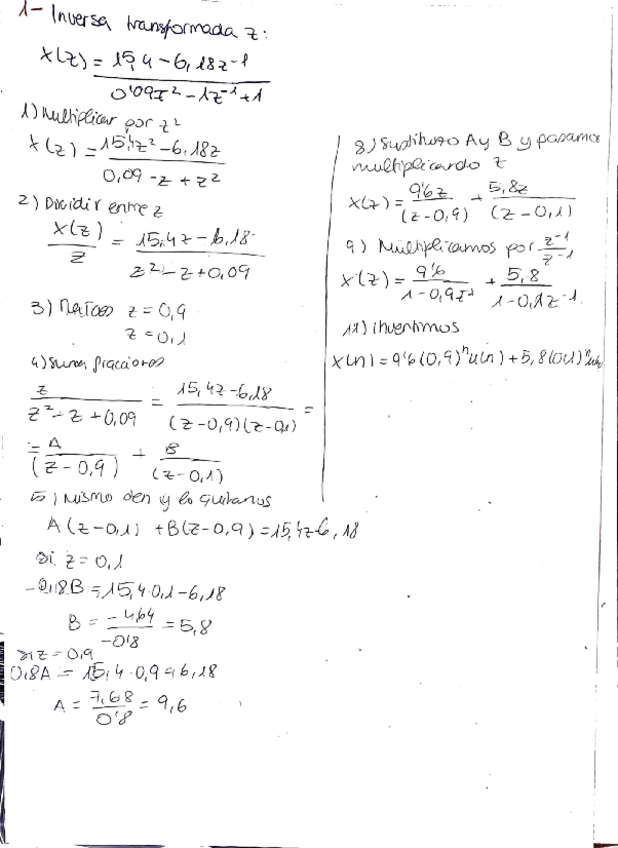 1- Inversa transformada z:
X(z) = 15,4 - 6,18z⁻¹ / 0'09z⁻² - 1z⁻¹ + 1
1) Multiplicar por z²
X(z) = 15,4z² - 6,18z / 0,09 - z + z²
2) Dividir entre z
X(z) / z = 15,4z - 6,18 / z² - z + 0,09
3) z = 0,9
z = 0,1
4) Suma fracciones
z / z² - z + 0,09 = 15,4z - 6,18 / (z - 0,9)(z - 0,1) =
= A / (z - 0,9) + B / (z - 0,1)
5) Mismo den y lo quitamos
A(z - 0,1) + B(z - 0,9) = 15,4z - 6,18
si z = 0,1
-0,8B = 15,4·0,1 - 6,18
B = -4,64 / -0'8 = 5,8
si z = 0,9
0,8A = 15,4·0,9 6,18
A = 7,68 / 0'8 = 9,6
8) Sustituyo A y B y pasamos
multiplicando z
X(z) = 9'6z / (z - 0,9) + 5,8z / (z - 0,1)
9) Multiplicamos por z⁻¹ / z⁻¹
X(z) = 9'6 / 1 - 0,9z⁻¹ + 5,8 / 1 - 0,1z⁻¹
11) invertimos
x(n) = 9'6(0,9)ⁿu(n) + 5,8(0,1)ⁿu(n)